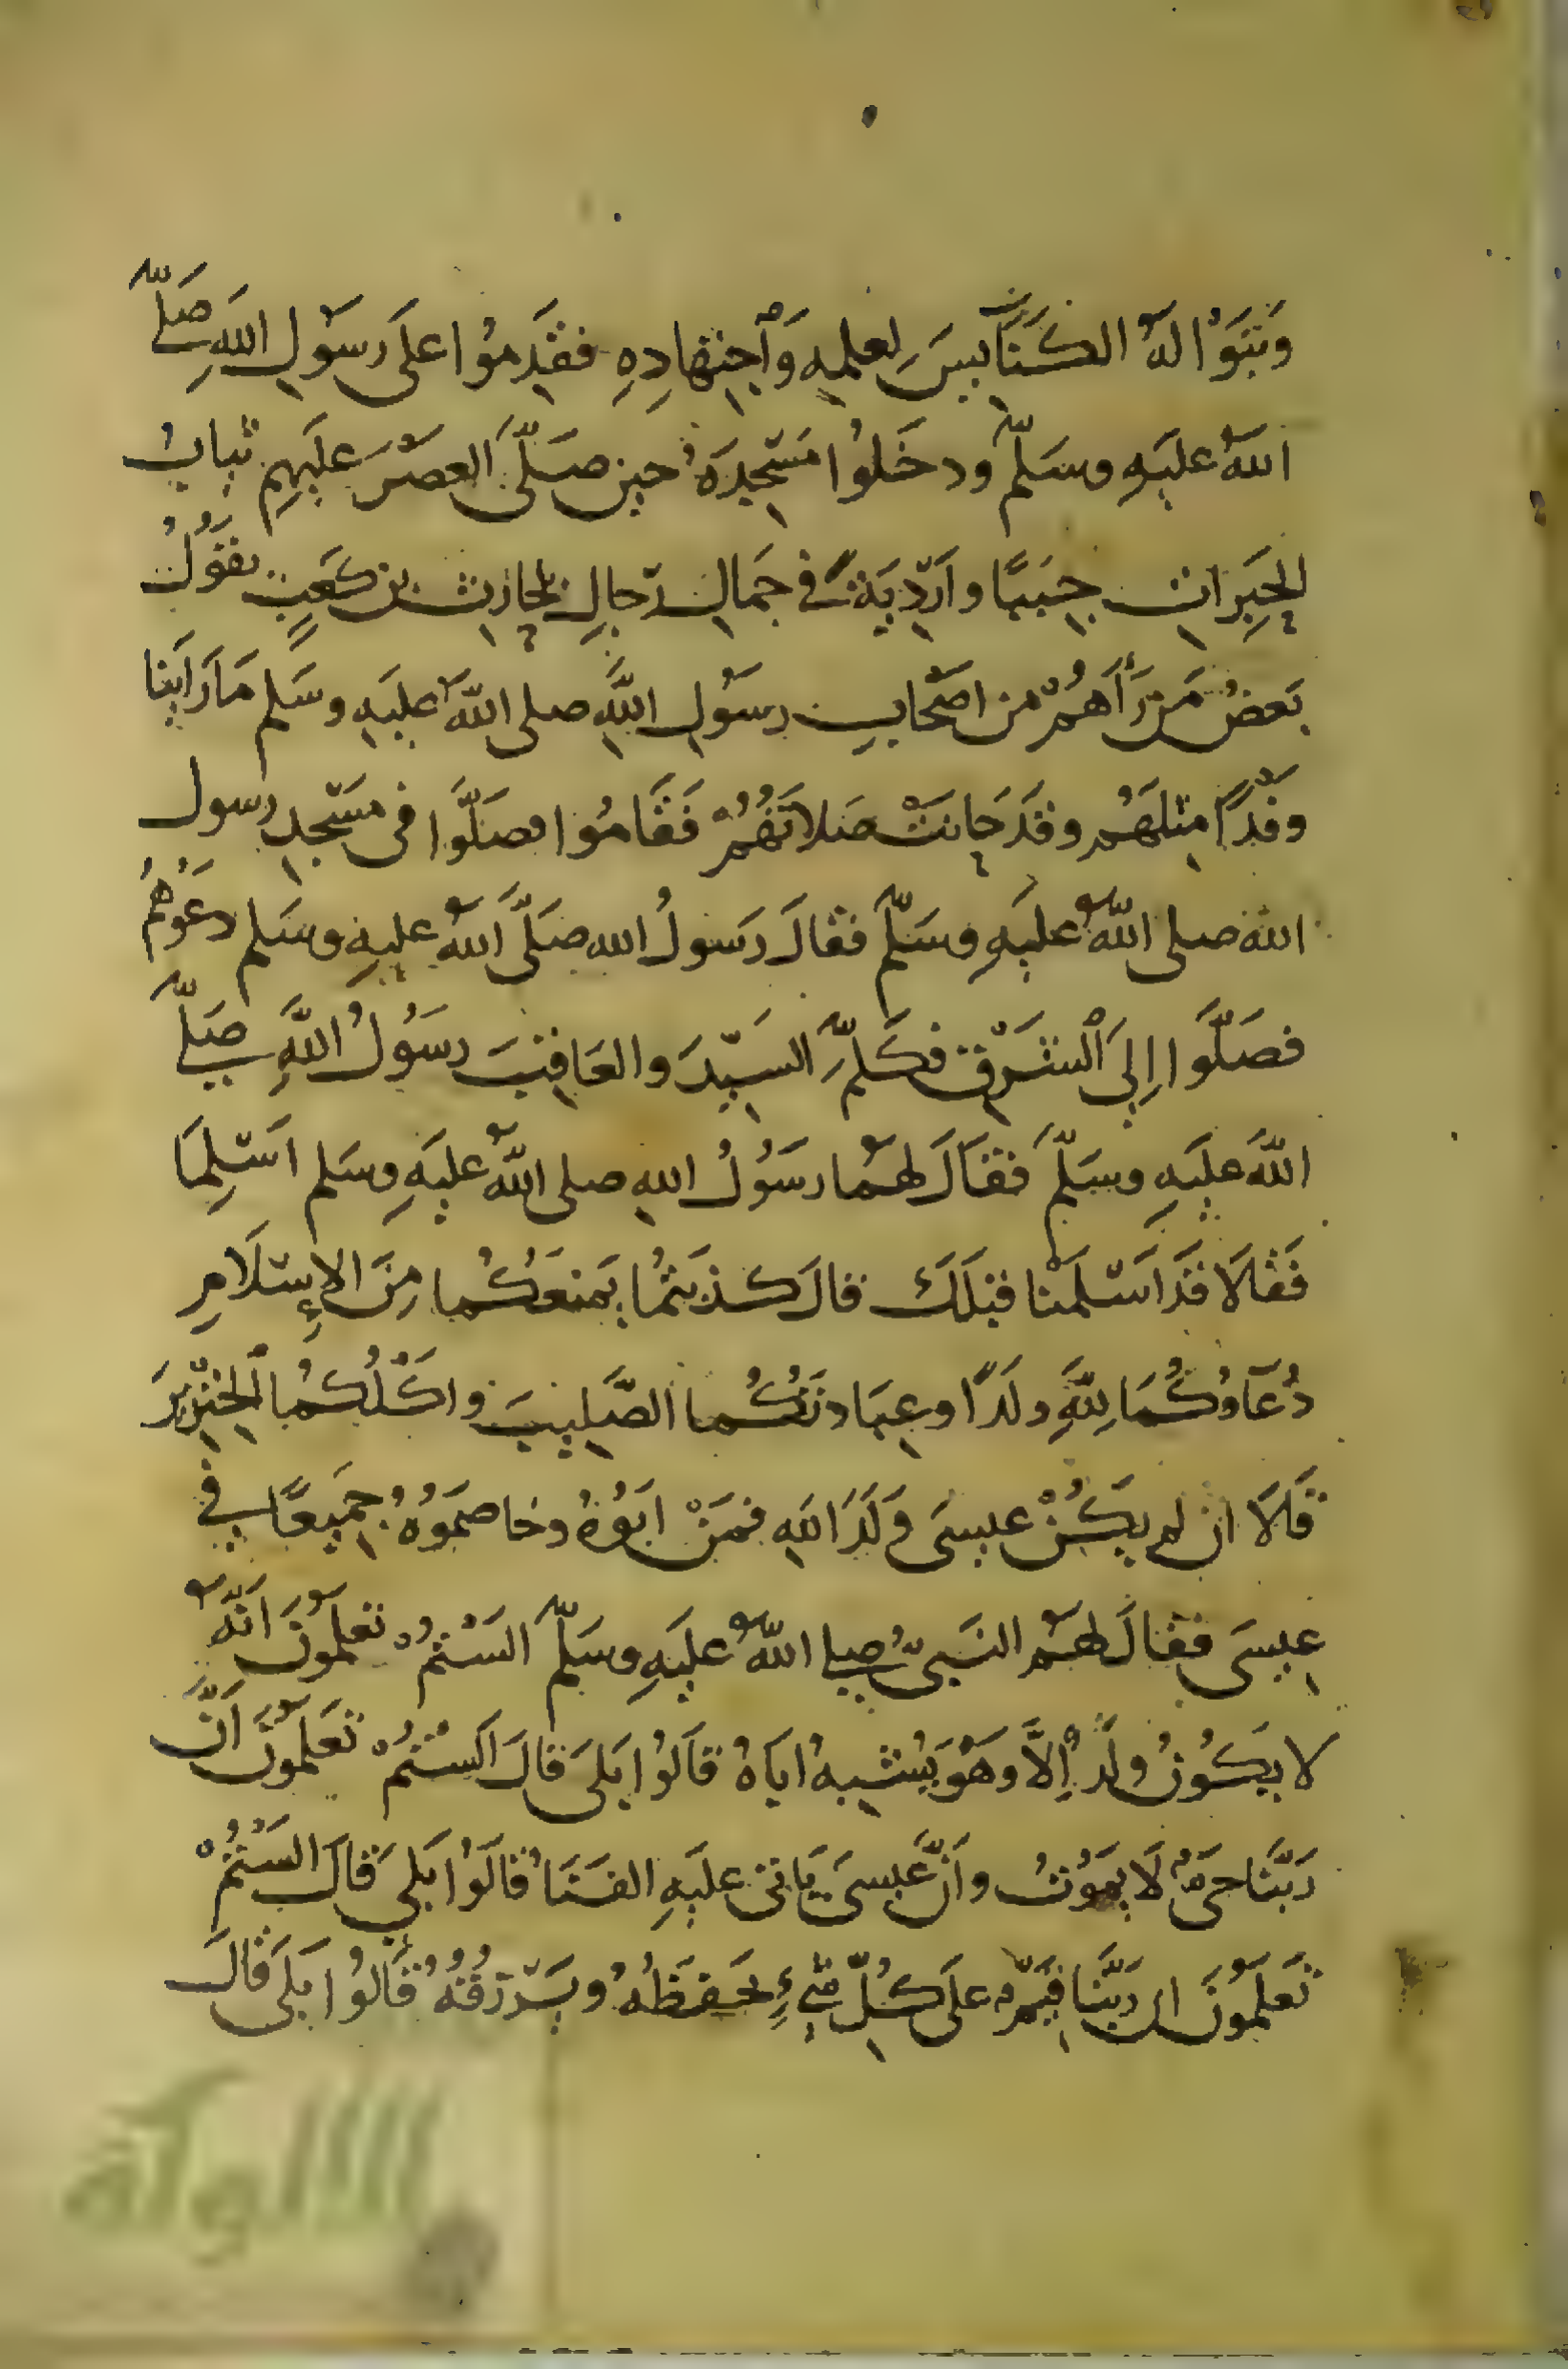 وَبَنَوْا لَهُ الكَنَايِسَ لِعلمِهِ وَٱجتِهادِهِ فقَدِمُوا علَى رَسُولِ اللهِ صَلَّى
اللهُ عليَهِ وسَلَّم ودخَلوُا مَسْجِدَهُ حين صَلَّى العصْرَ علَيهِم ثيابُ
الحِبَرات جبَبًا وارْدِيَةً في جَمالِ رجالِ بلحارث بن كعبٍ يقوُلُ
بَعضُ مَن رَأَهُمْ من اصْحابِ رسُولِ اللهِ صلى اللهُ عليَهِ وسَلم مَا رَاَينا
وَفْدًا مثلهَمُ وقد حَانتْ صَلاتهُمْ فَقَامُوا فصَلَّوا فى مسْجِدِ رسول
اللهِ صلى اللهُ عليَهِ وسَلَّم فقالَ رَسولُ الله صَلَّى اللهُ عليهِ وسَلم دعَوُهُم
فصَلَّوا الِىَ ٱلشَرْقِ فكلَّم السَيّدُ والعَاقِبُ رسَوُلَ اللهِ صَلَّى
اللهُ عليَهِ وسَلَّم فقَالَ لهُمْا رسَوُلُ اللهِ صلى اللهُ عليَهِ وسَلم اسْلِمَا
فَقالَا قدَ اسْلَمْنا قبلَكَ قالَ كذبتُمَا يَمنعَكُمُا مِنَ الإِسْلَامِ
دُعَآوُكُمَا لِلهِ ولَدًا وعِبَادتَكُمُا الصَّلِيبَ واكْلُكُمُا ٱلخِنْزِيرَ
قَالَا ان لم يَكُنْ عيسَى وَلَدَ اللهِ فمَنْ ابَوُهُ وخاصمَوُهُ جَميعًا في
عِيسَى فقالَ لهُم النَبىُّ صلى اللهُ عليَهِ وسَلَّم السَتُمْ تعلمَوُنَ انَّهُ
لا يَكوُنُ ولَدٌ اِلاَّ وهَوَ يُشبِهُ اباَهُ قاَلوُا بَلىَ قالَ السَتُمْ تعَلمَوُنَ اَنَّ
رَبَّنَا حَىٌّ لَا يَموُتُ وانَّ عيسىَ يَاتى علَيهِ الفَنَا قالَوُا بَلىَ قالَ السَتُمْ
تَعلمَوُنَ ان رَبَّنَا قيّمٌ علىَ كلُّ شىءٍ يحَفظُهُ ويَرْزقُهُ قالوُا بَلىَ قالَ